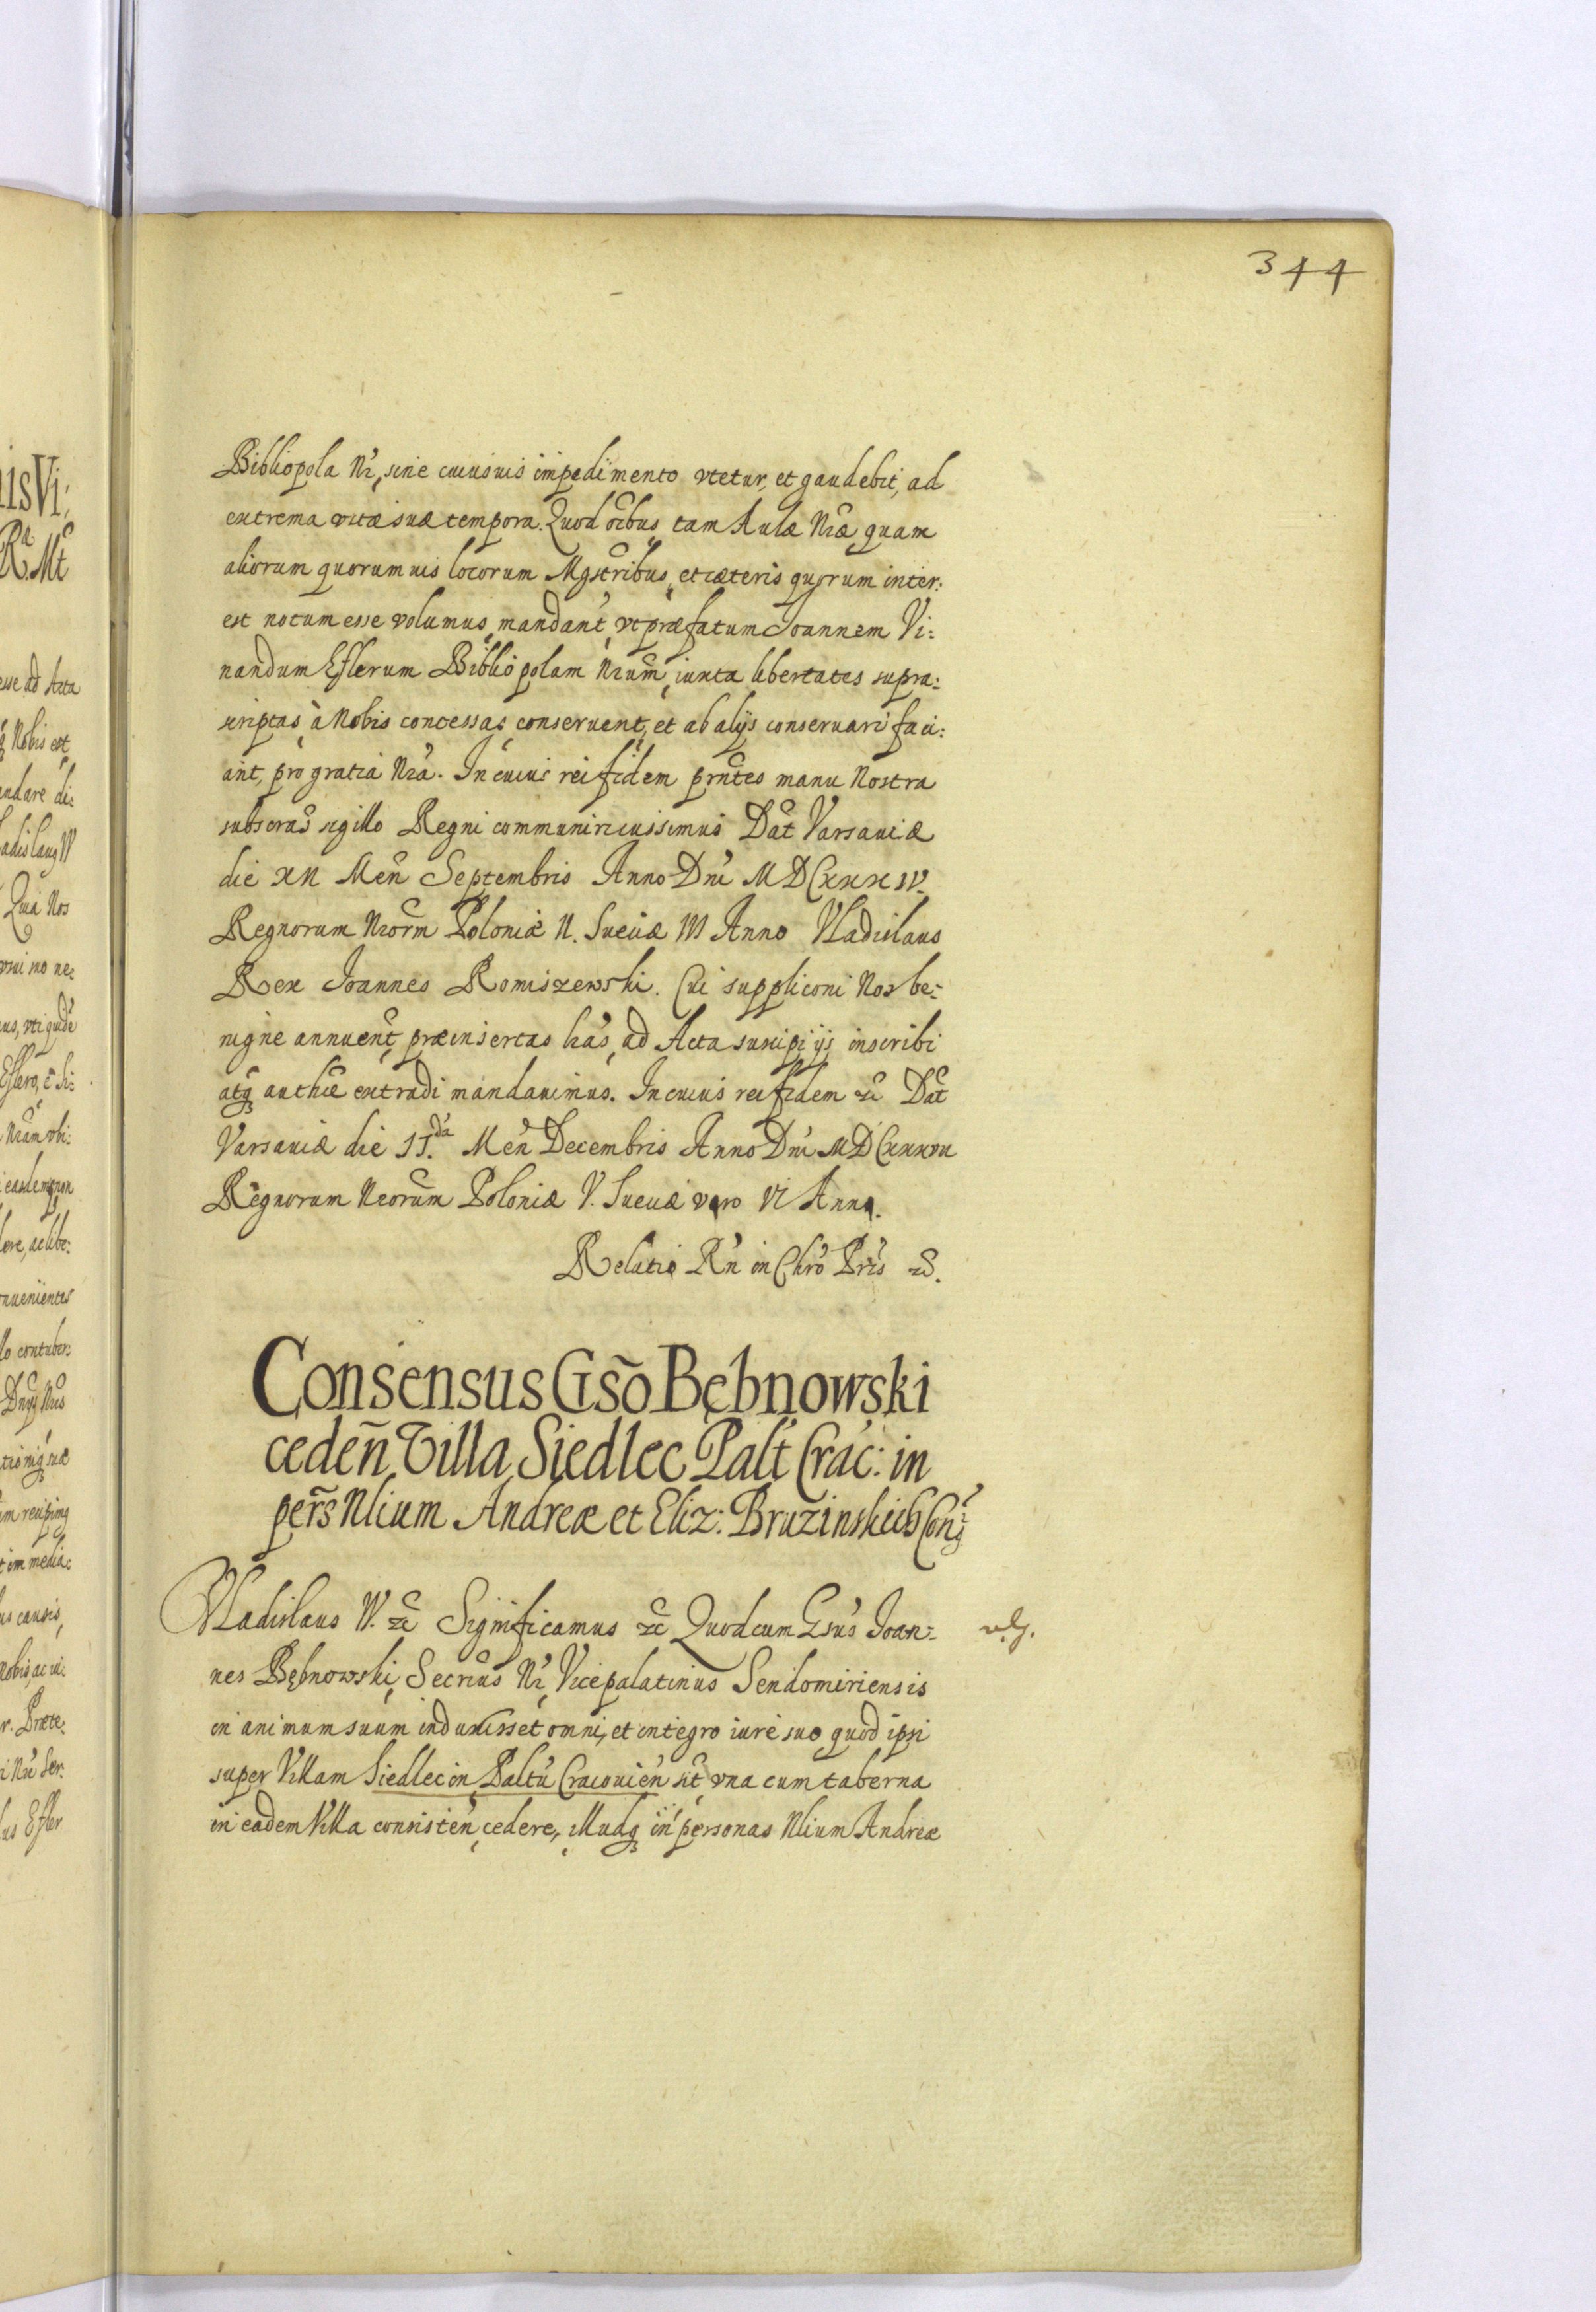 344
Bibliopola Nr̃, sine cuiusuis impedimento vtetur, et gaudebit, ad
extrema vitæ suæ tempora. Quod oĩbus, tam Aulæ Nræ, quam
aliorum quorumuis locorum Mgstribus, et cæteris quorum inter:
est notum esse volumus, mandant, vt præfatum Joannem Vi:
nandum Eslerum Bibliopolam Nrum, iuxta libertates supra:
scriptas, à Nobis concessas, conseruent, et ab alijs conseruari faci:
ant, pro gratia Nra. In cuius rei fidem prntes manu Nostra
subscras sigillo Regni communiri iussimus Dat Varsauiæ
die XII Men Septembris Anno Dni MDCXXXIV.
Regnorum Nrorm Poloniæ II. Sueciæ III Anno Vladislaus
Rex Joannes Romiszewski. Cui suppliconi Nos be:
nigne annuent, præinsertas has, ad Acta suscipi ijs inscribi
atq authce extradi mandauimus. In cuius rei fidem etc Dat
Varsauiæ die 11.da Men Decembris Anno Dni MDCXXXVII
Regnorum Nrorum Poloniæ V. Sueciæ vero VI Anno.
Relatio Rn in Chro Pris etc.
Consensus Gso Bębnowski
ceden Villa Siedlec Palt Crac: in
pers Nlium Andreæ et Eliz: Bruzinskich Con:
Vladislaus IV. etc Significamus etc Quod cum Gsus Joan:
v.g.
nes Bębnowski, Secrius Nr, Vicepalatinus Sendomiriensis
in animum suum induxisset omni, et integro iure suo quod ipsi
super Villam Siedlec in Paltu Cracouien sit, vna cum taberna
in eadem Villa consisten, cedere, illudq in personas Nlium Andreæ